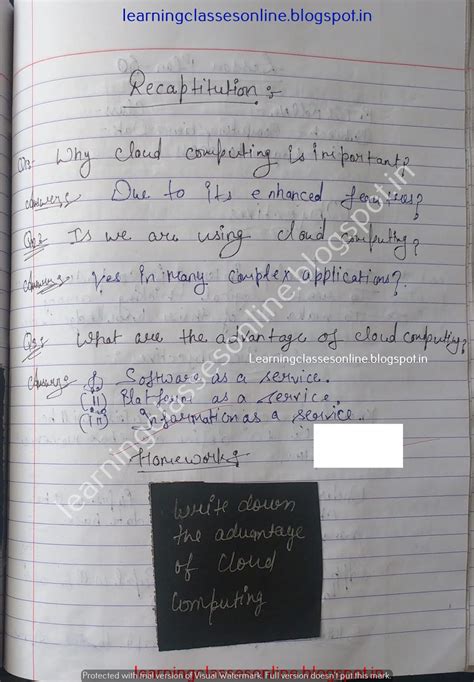 learningclassesonline.blogspot.in
Recaptitution:
Q1: Why cloud computing is important?
Answer: Due to its enhanced features?
Q2: Is we are using cloud computing?
Answer: Yes In many complex applications?
Q3: What are the advantage of cloud computing?
Learningclassesonline.blogspot.in
Answer: (I) Software as a service.
(II) Platform as a service.
(III) Information as a service.
learningclassesonline.blogspot.in
Homework:
Write down
the advantage
of cloud
computing
learningclassesonline.blogspot.in
Protected with trial version of Visual Watermark. Full version doesn't put this mark.